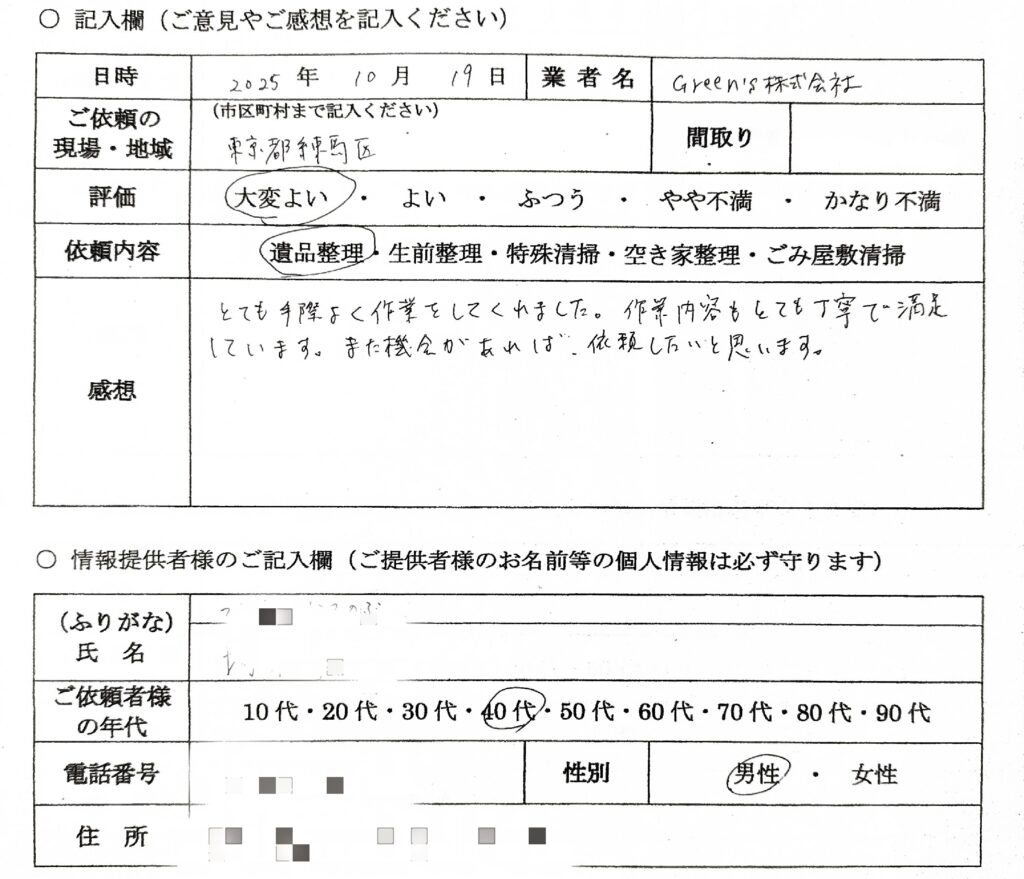 ○ 記入欄（ご意見やご感想を記入ください）
日時 2025年 10月 19日 業者名 Green's株式会社
ご依頼の現場・地域 (市区町村まで記入ください) 間取り
東京都練馬区
評価 大変よい ・ よい ・ ふつう ・ やや不満 ・ かなり不満
依頼内容 遺品整理・生前整理・特殊清掃・空き家整理・ごみ屋敷清掃
感想
とても手際よく作業をしてくれました。作業内容もとても丁寧で満足
しています。また機会があれば、依頼したいと思います。
○ 情報提供者様のご記入欄（ご提供者様のお名前等の個人情報は必ず守ります）
（ふりがな）
氏 名
ご依頼者様の年代 10代・20代・30代・40代・50代・60代・70代・80代・90代
電話番号 性別 男性 ・ 女性
住 所